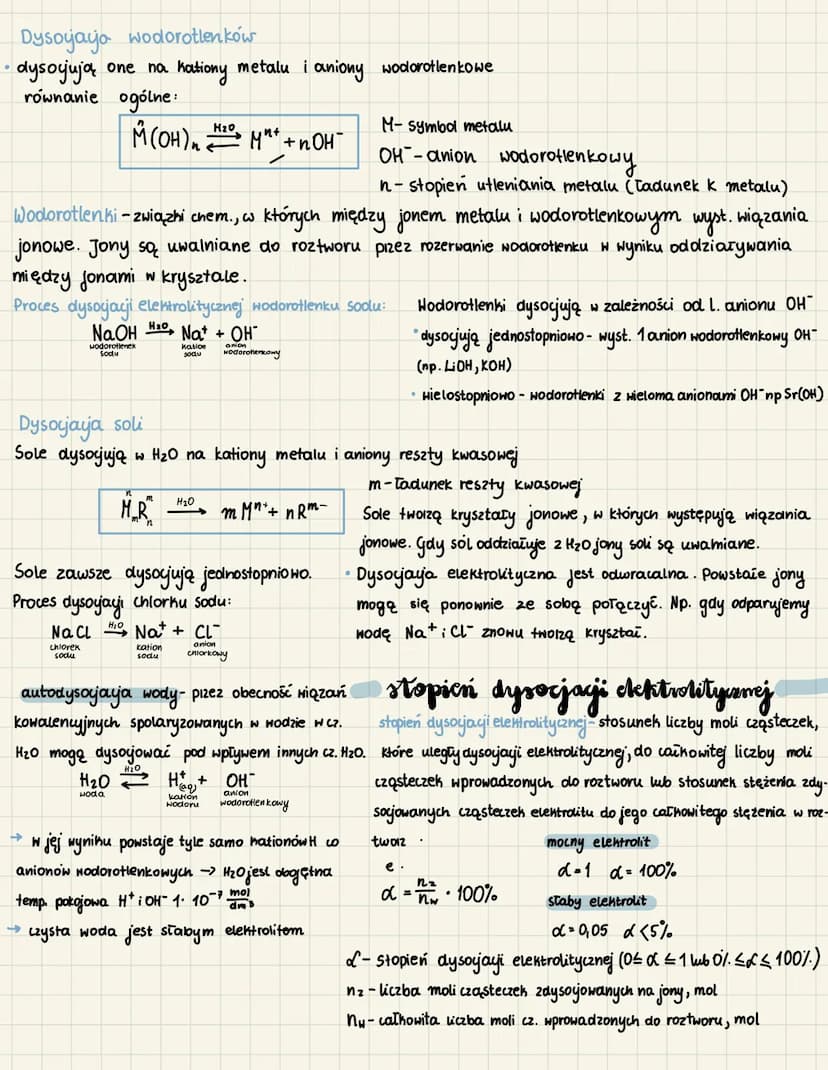 Dysocjacja wodorotlenków
• dysocjują one na kationy metalu i aniony wodorotlenkowe
równanie ogólne:
M̂(OH)ₙ ⇄ Mⁿ⁺ + nOH⁻
H₂O
M- symbol metalu
OH⁻- anion wodorotlenkowy
n- stopień utleniania metalu (ładunek k metalu)
Wodorotlenki - związki chem., w których między jonem metalu i wodorotlenkowym wyst. wiązania
jonowe. Jony są uwalniane do roztworu przez rozerwanie wodorotlenku w wyniku oddziaływania
między jonami w krysztale.
Proces dysocjacji elektrolitycznej wodorotlenku sodu:
NaOH →(H₂O) Na⁺ + OH⁻
wodorotlenek sodu
kation sodu
anion wodorotlenkowy
Wodorotlenki dysocjują w zależności od l. anionu OH⁻
• dysocjują jednostopniowo - wyst. 1 anion wodorotlenkowy OH⁻
(np. LiOH, KOH)
• wielostopniowo - wodorotlenki z wieloma anionami OH⁻ np Sr(OH)
Dysocjacja soli
Sole dysocjują w H₂O na kationy metalu i aniony reszty kwasowej
n m
MₘRₙ →(H₂O) m Mⁿ⁺ + n Rᵐ⁻
m- ładunek reszty kwasowej
Sole tworzą kryształy jonowe, w których występują wiązania
jonowe. Gdy sól oddziałuje z H₂O jony soli są uwalniane.
Sole zawsze dysocjują jednostopniowo.
Proces dysocjacji chlorku sodu:
NaCl →(H₂O) Na⁺ + Cl⁻
chlorek sodu
kation sodu
anion chlorkowy
• Dysocjacja elektrolityczna jest odwracalna. Powstałe jony
mogą się ponownie ze sobą połączyć. Np. gdy odparujemy
wodę Na⁺ i Cl⁻ znowu tworzą kryształ.
autodysocjacja wody - przez obecność wiązań
kowalencyjnych spolaryzowanych w wodzie w cz.
H₂O mogą dysocjować pod wpływem innych cz. H₂O.
H₂O ⇄(H₂O) H⁺(aq) + OH⁻
woda
kation wodoru
anion wodorotlenkowy
→ w jej wyniku powstaje tyle samo kationów H co
anionów wodorotlenkowych → H₂O jest obojętna
temp. pokojowa H⁺ i OH⁻ 1· 10⁻⁷ mol/dm³
→ czysta woda jest słabym elektrolitem
stopień dysocjacji elektrolitycznej
stopień dysocjacji elektrolitycznej - stosunek liczby moli cząsteczek,
które uległy dysocjacji elektrolitycznej, do całkowitej liczby moli
cząsteczek wprowadzonych do roztworu lub stosunek stężenia zdy-
socjowanych cząsteczek elektrolitu do jego całkowitego stężenia w roz-
tworz .
e .
α = n_z/n_w · 100%
mocny elektrolit
α=1 α= 100%
słaby elektrolit
α=0,05 α<5%
α - stopień dysocjacji elektrolitycznej (0≤ α ≤ 1 lub 0% ≤α≤ 100%)
n_z - liczba moli cząsteczek zdysocjowanych na jony, mol
n_w - całkowita liczba moli cz. wprowadzonych do roztworu, mol